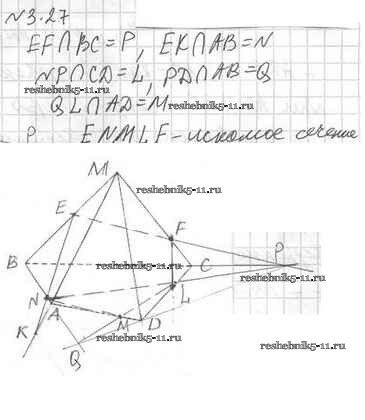 №3.27
EF∩BC=P, EK∩AB=N
NP∩CD=L, PD∩AB=Q
reshebnik5-11.ru
QL∩AD=M
reshebnik5-11.ru
P ENMLF-искомое сечение
M
reshebnik5-11.ru
E
F
B
reshebnik5-11.ru
C
P
N
L
A
M
D
K
reshebnik5-11.ru
reshebnik5-11.ru
Q